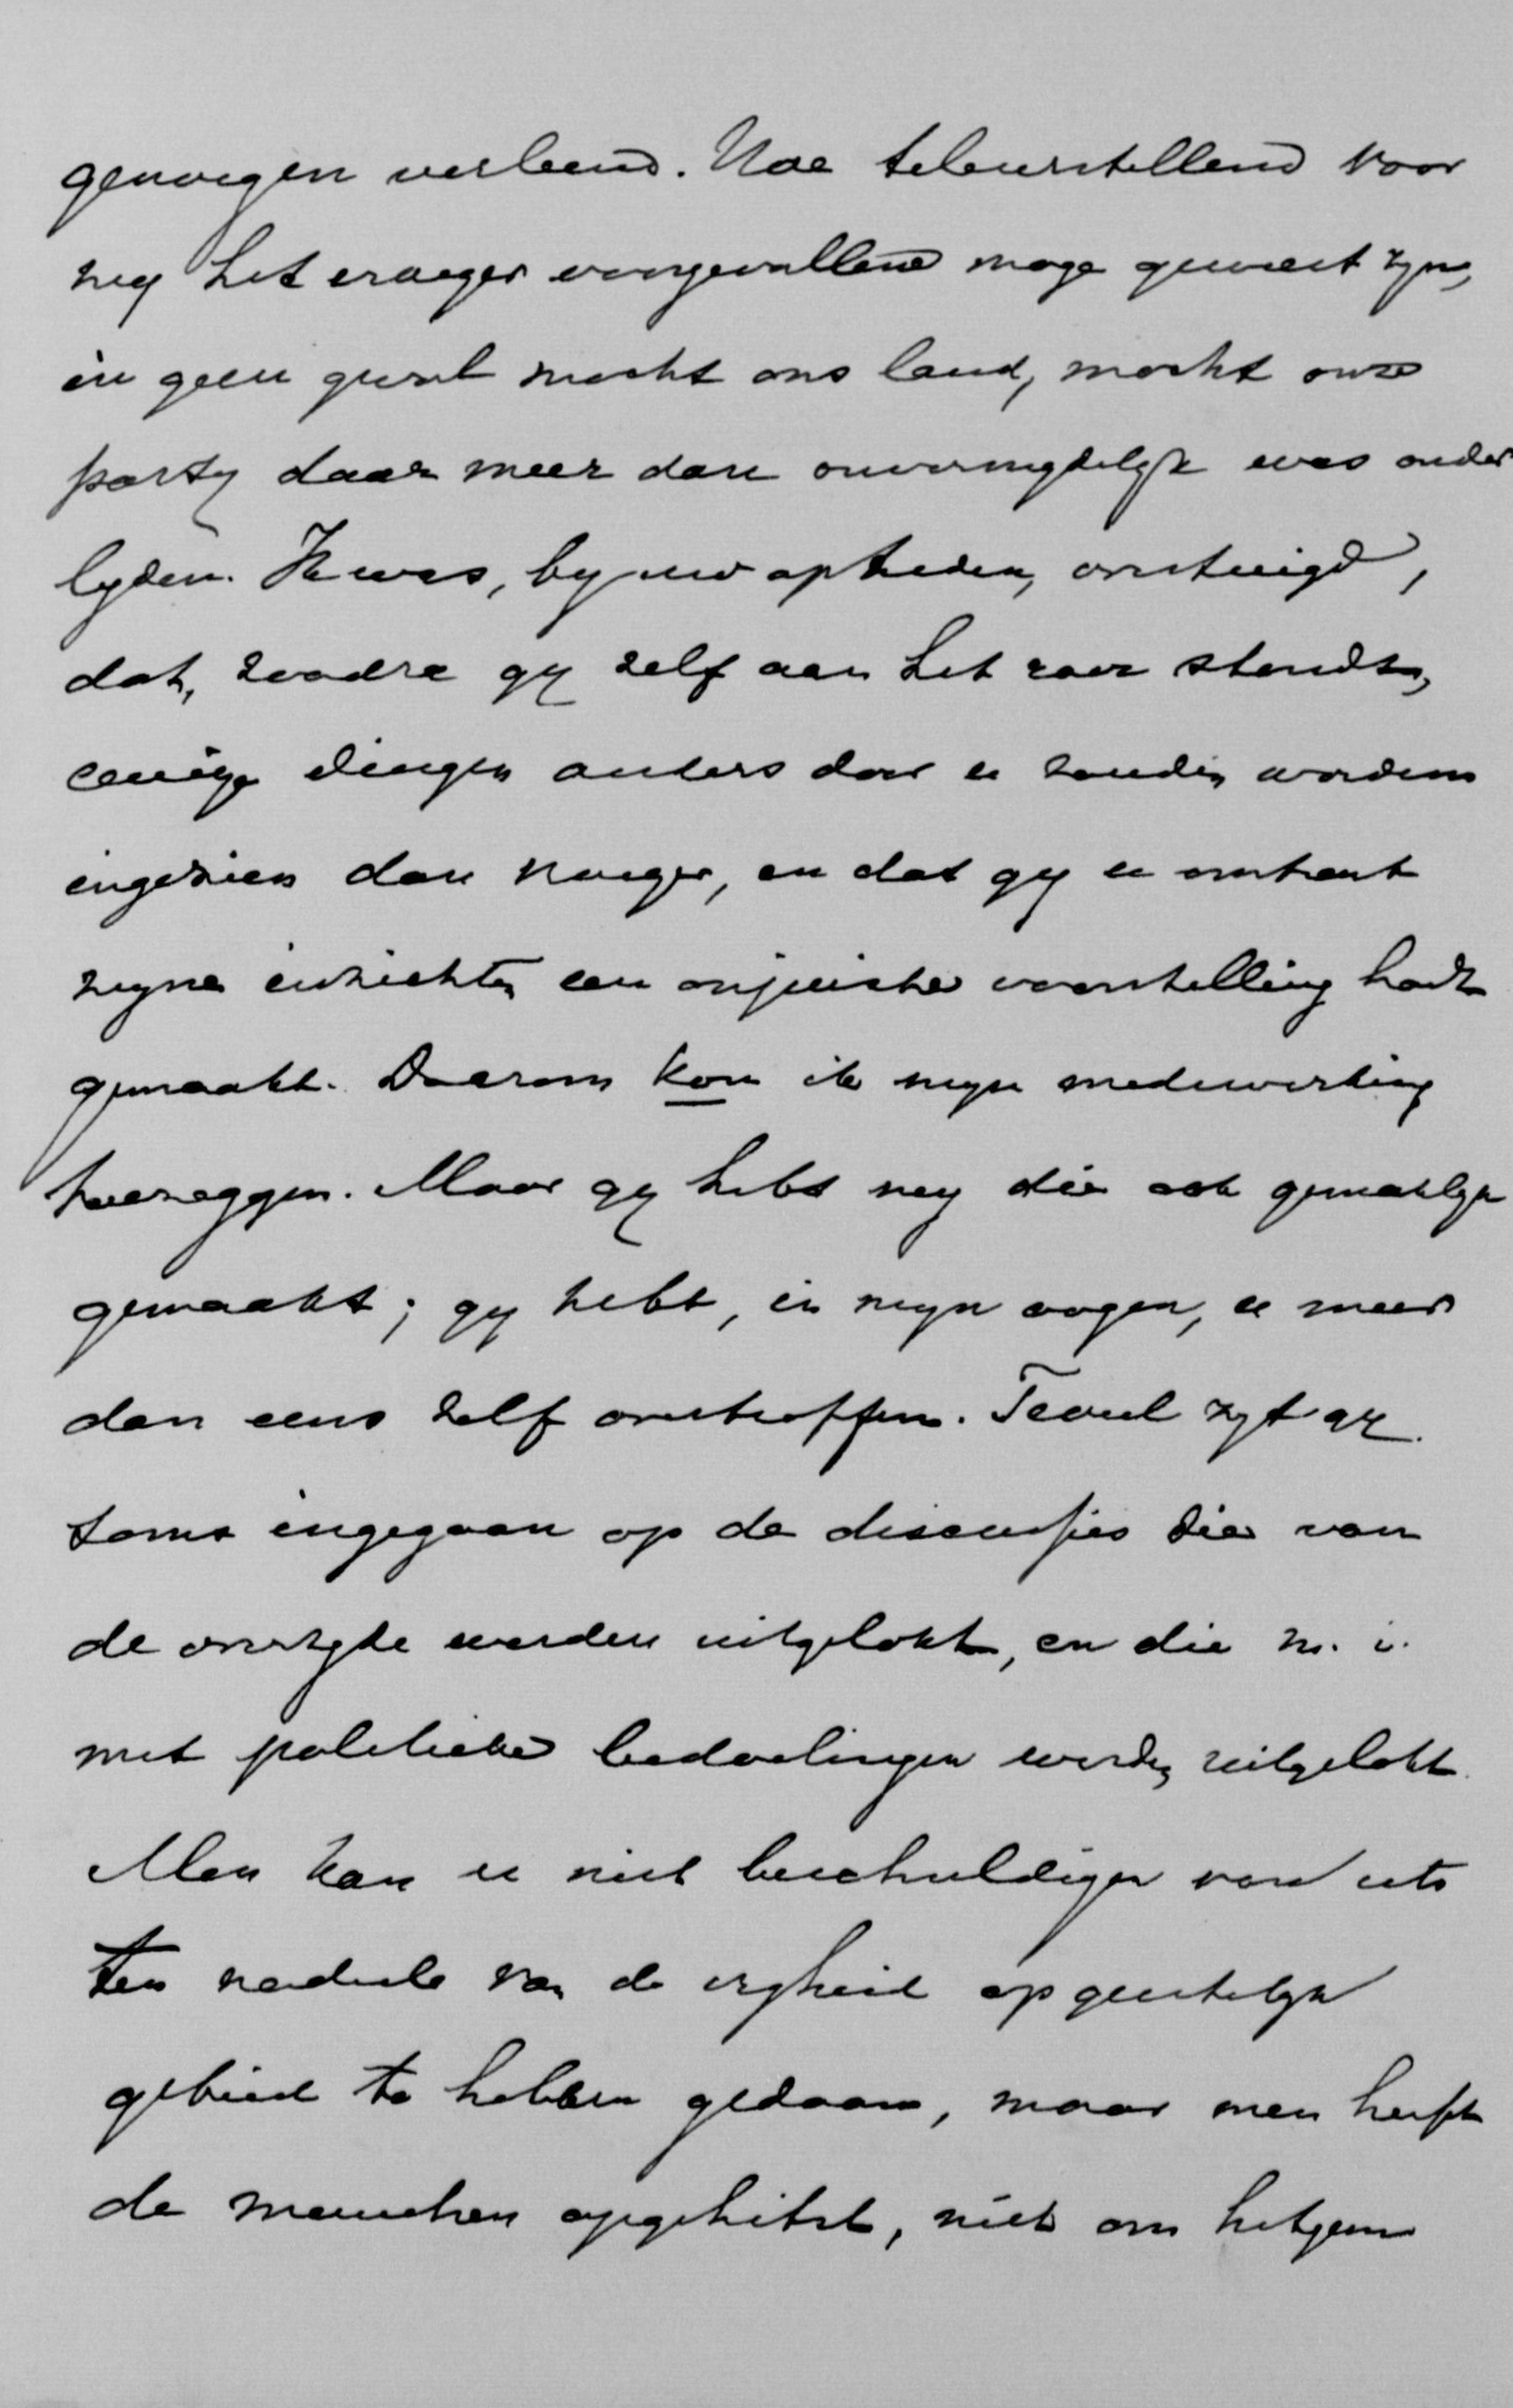 genoegen verleend. Hoe teleurstellend voor
my het vroeger voorgevallene moge geweest zyn,
in geen geval mocht ons land, mocht onze
party daar meer dan onvermydelyk was onder
lyden. Ik was, by uw optreden, overtuigd,
dat, zoodra gy zelf aan het roer stondt,
eenige dingen anders door u zouden worden
ingezien dan vroeger, en dat gy u omtrent
myne inzichten een onjuiste voorstelling hadt
gemaakt. Daarom kon ik myn medewerking
toezeggen. Maar gy hebt my die ook gemaklyk
gemaakt; gy hebt, in myn oogen, u meer
dan eens zelf overtroffen. Teveel zyt gy
soms ingegaan op de discussies die van
de overzyde werden uitgelokt, en die m. i.
met politieke bedoelingen werden uitgelokt.
Men kan u niet beschuldigen van iets
ten nadeele van de vryheid op geestelyk
gebied te hebben gedaan, maar men heeft
de menschen opgehitst, niet om hetgeen